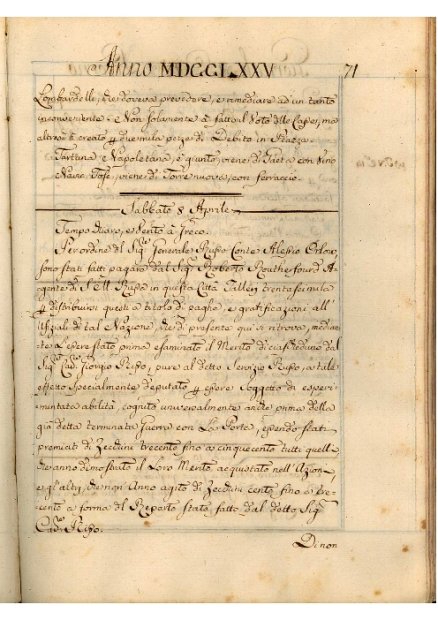 Anno MDCCLXXV 71
Lombardelli, che doveva provedere, e rimediare ad un tanto
inconveniente. e Non solamente à fatto il Voto delle Casse, ma
altresi è creato per due mila pezze di Debito in Piazza
Tartana e Napoletana, e giunto, viene di Gaeta con Vino
Nave Tosc. viene di Torrenuova, con ferraccio
Sabbato 8 Aprile
Tempo chiaro, e Vento à Greco.
Per ordine del Sig.r Generale Russo Conte Alessio Orlow
sono stati fatti pagare dal Sig.r Roberto Rutherfourd A-
gente di S. M. Russa in questa Città Zillen trentaseimila
per distribuirsi questi à titolo di paghe, e gratificazioni all'
Ufiziali di tal Nazione, che di presente qui si ritrova, media-
te l'essere stato prima esaminato il Merito di ciascheduno dal
Sig.r Cav. Giorgio Rizzo, pure al detto Servizio Russo, a tale
effetto specialmente deputato per essere Soggetto di esperi-
mentata abilità, cognito universalmente anche prima della
già detta terminata Guerra con La Porta, essendo stati
premiati di Zecchini trecento fino a cinquecento tutti quelli
che anno dimostrato il Loro Merito, acquistato nell'Azioni,
e gl'altri che non Anno agito di Zecchini cento fino a tre-
cento a forma del Reparto stato fatto dal detto Sig.r
Cav. Rizzo.
Di non